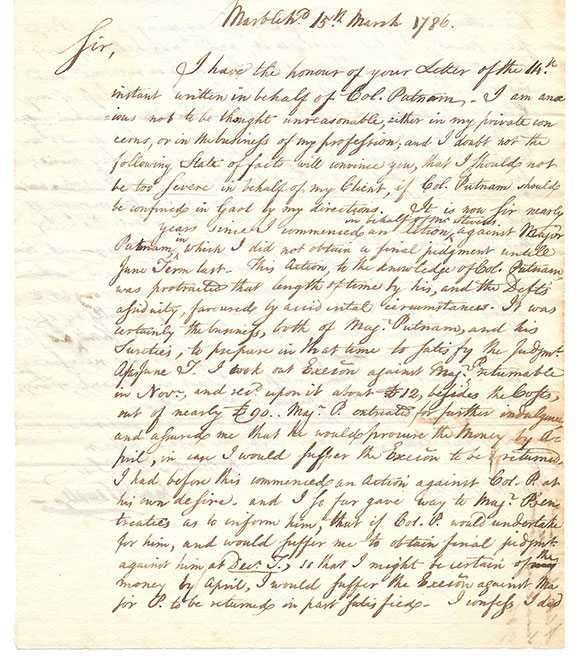 Marbleh.d 15th March 1786.
Sir,
I have the honour of your Letter of the 14th
instant written in behalf of Col. Putnam. I am anx
=ious not to be thought unreasonable either in my private con
cerns, or in the business of my profession, and I doubt not the
following State of facts will convince you, that I should not
be too Severe in behalf of my Client, if Col. Putnam should
be confined in Gaol by my directions. It is now Sir nearly
years since I commenced an Action in behalf of Mr. against Major
Putnam, in which I did not obtain a final judgment untill
June Term last. This Action, to the knowledge of Col. Putnam
was protracted that length of time by his, and the Defts
assiduity, favoured by accidental circumstances. It was
certainly the business, both of Majr. Putnam, and his
Sureties, to prepare in that time to satisfy the Judgmt.
June T. I took out Execōn against Majr. P. returnable
in Novr., and recd. upon it about £12, besides the Costs,
out of nearly £90. Majr. P. entreated for further indulgence
and assured me that he would procure the Money by A-
pril, in case I would suffer the Execōn to be returned.
I had before this commenced an Action against Col. P. at
his own desire - and I so far gave way to Majr. P's en
treaties as to inform him, that if Col. P. would undertake
for him, and would suffer me to obtain final judgmt.
against him at Decr. T., so that I might be certain of the
money by April, I would suffer the Execōn against Ma
jor P. to be returned in part satisfied. I confess I did